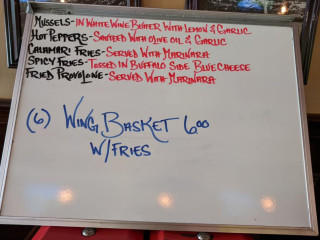 MUSSELS-IN WHITE WINE BUTTER WITH LEMON & GARLIC
HOT PEPPERS-SAUTEED WITH OLIVE OIL & GARLIC
CALAMARI FRIES-SERVED WITH MARINARA
SPICY FRIES-TOSSED IN BUFFALO SIDE BLUE CHEESE
FRIED PROVOLONE-SERVED WITH MARINARA
(6) WING BASKET 6.00
W/FRIES